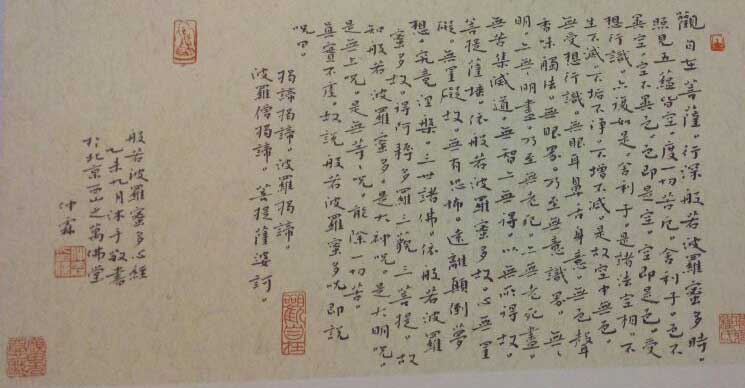 觀自在菩薩。行深般若波羅蜜多時。
照見五蘊皆空。度一切苦厄。舍利子。色不
異空。空不異色。色即是空。空即是色。受
想行識。亦復如是。舍利子。是諸法空相。不
生不滅。不垢不淨。不增不減。是故空中無色。
無受想行識。無眼耳鼻舌身意。無色聲
香味觸法。無眼界。乃至無意識界。無無
明。亦無無明盡。乃至無老死。亦無老死盡。
無苦集滅道。無智亦無得。以無所得故。
菩提薩埵。依般若波羅蜜多故。心無罣
礙。無罣礙故。無有恐怖。遠離顛倒夢
想。究竟涅槃。三世諸佛。依般若波羅
蜜多故。得阿耨多羅三藐三菩提。故
知般若波羅蜜多。是大神咒。是大明咒。
是無上咒。是無等等咒。能除一切苦。
真實不虛。故說般若波羅蜜多咒。即說
咒曰。
揭諦揭諦。波羅揭諦。
波羅僧揭諦。菩提薩婆訶。
觀自在
般若波羅蜜多心經
乙未九月沐手敬書
於北京西山之萬佛堂
仲霖